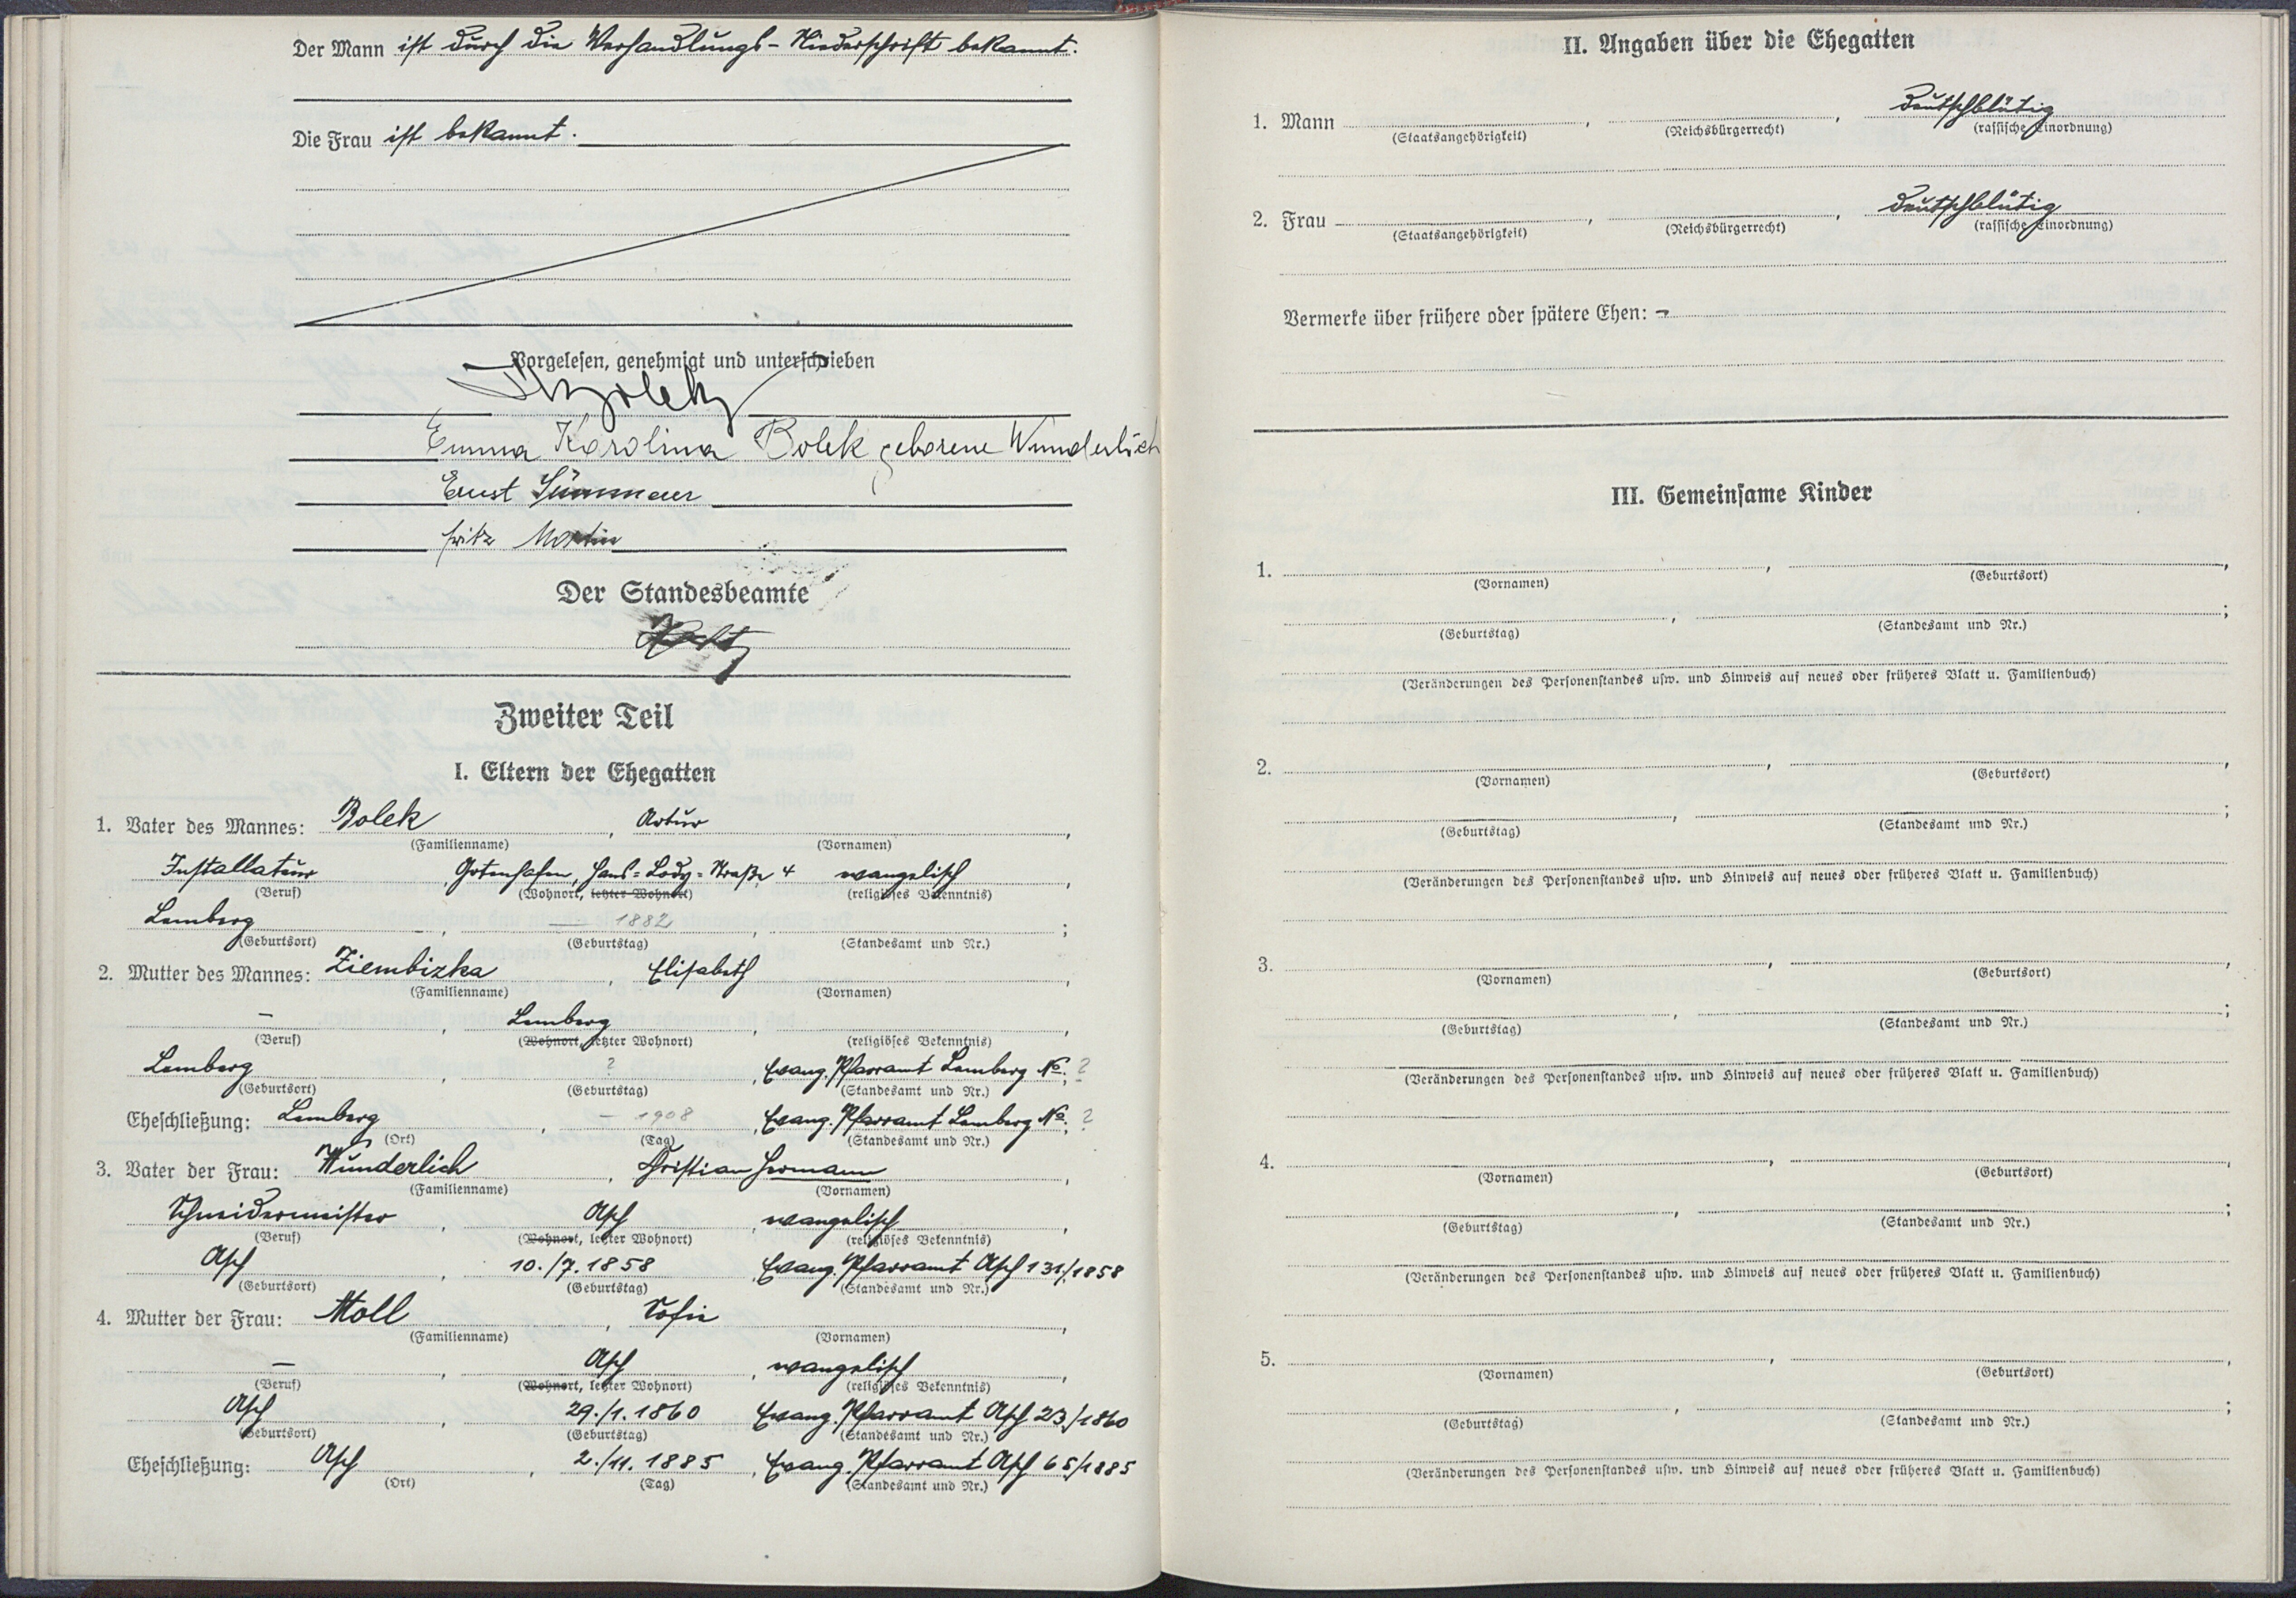 Der Mann ist durch die Verhandlungs-Niederschrift bekannt.
Die Frau ist bekannt.
Vorgelesen, genehmigt und unterschrieben
Bolek
Emma Karolina Bolek geborene Wunderlich
Ernst
Fritz Martin
Der Standesbeamte
Zweiter Teil
I. Eltern der Ehegatten
1. Vater des Mannes: Bolek, Artur,
(Familienname) (Vornamen)
Installateur, Gotenhafen, Hans-Lody-Straße 4 evangelisch,
(Beruf) (Wohnort, letzter Wohnort) (religiöses Bekenntnis)
Lemberg, — 1882, ;
(Geburtsort) (Geburtstag) (Standesamt und Nr.)
2. Mutter des Mannes: Ziembizka, Elisabeth,
(Familienname) (Vornamen)
—, Lemberg, ,
(Beruf) (Wohnort, letzter Wohnort) (religiöses Bekenntnis)
Lemberg, ?, Evang. Pfarramt Lemberg No. ?
(Geburtsort) (Geburtstag) (Standesamt und Nr.)
Eheschließung: Lemberg, — 1908, Evang. Pfarramt Lemberg No. ?
(Ort) (Tag) (Standesamt und Nr.)
3. Vater der Frau: Wunderlich, Christian Hermann,
(Familienname) (Vornamen)
Schneidermeister, Asch, evangelisch,
(Beruf) (Wohnort, letzter Wohnort) (religiöses Bekenntnis)
Asch, 10./7. 1858, Evang. Pfarramt Asch 131/1858
(Geburtsort) (Geburtstag) (Standesamt und Nr.)
4. Mutter der Frau: Moll, Sofie,
(Familienname) (Vornamen)
—, Asch, evangelisch,
(Beruf) (Wohnort, letzter Wohnort) (religiöses Bekenntnis)
Asch, 29./1. 1860 Evang. Pfarramt Asch 23/1860
(Geburtsort) (Geburtstag) (Standesamt und Nr.)
Eheschließung: Asch, 2./11. 1885, Evang. Pfarramt Asch 65/1885
(Ort) (Tag) (Standesamt und Nr.)
II. Angaben über die Ehegatten
1. Mann , , deutschblütig
(Staatsangehörigkeit) (Reichsbürgerrecht) (rassische Einordnung)
2. Frau , , deutschblütig
(Staatsangehörigkeit) (Reichsbürgerrecht) (rassische Einordnung)
Vermerke über frühere oder spätere Ehen: -
III. Gemeinsame Kinder
1. , ,
(Vornamen) (Geburtsort)
, ;
(Geburtstag) (Standesamt und Nr.)
(Veränderungen des Personenstandes usw. und Hinweis auf neues oder früheres Blatt u. Familienbuch)
2. , ,
(Vornamen) (Geburtsort)
, ;
(Geburtstag) (Standesamt und Nr.)
(Veränderungen des Personenstandes usw. und Hinweis auf neues oder früheres Blatt u. Familienbuch)
3. , ,
(Vornamen) (Geburtsort)
, ;
(Geburtstag) (Standesamt und Nr.)
(Veränderungen des Personenstandes usw. und Hinweis auf neues oder früheres Blatt u. Familienbuch)
4. , ,
(Vornamen) (Geburtsort)
, ;
(Geburtstag) (Standesamt und Nr.)
(Veränderungen des Personenstandes usw. und Hinweis auf neues oder früheres Blatt u. Familienbuch)
5. , ,
(Vornamen) (Geburtsort)
, ;
(Geburtstag) (Standesamt und Nr.)
(Veränderungen des Personenstandes usw. und Hinweis auf neues oder früheres Blatt u. Familienbuch)